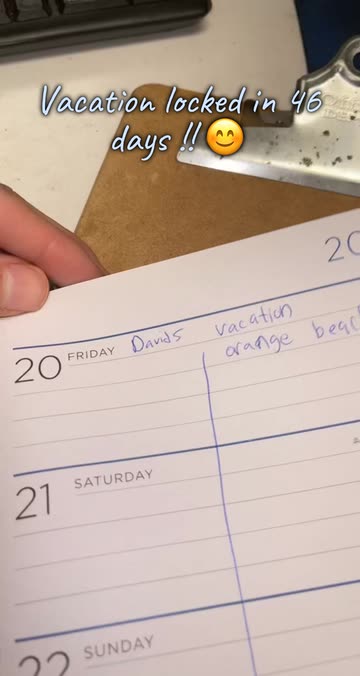 Vacation locked in 46
days !!😊
20
20 FRIDAY Davids vacation
orange beach
21 SATURDAY
22 SUNDAY